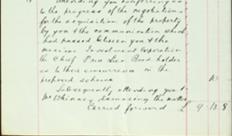 attending you conferring as
to the progress of the negotiations
for the acquisition of the property
by you & the communication which
had passed between you & the
Investment Corporation
the Chief Bond holder
as to their concurrence in the
proposed scheme
Subsequently attending you &
Mr discussing the matter
Carried forward £ 9 13 8